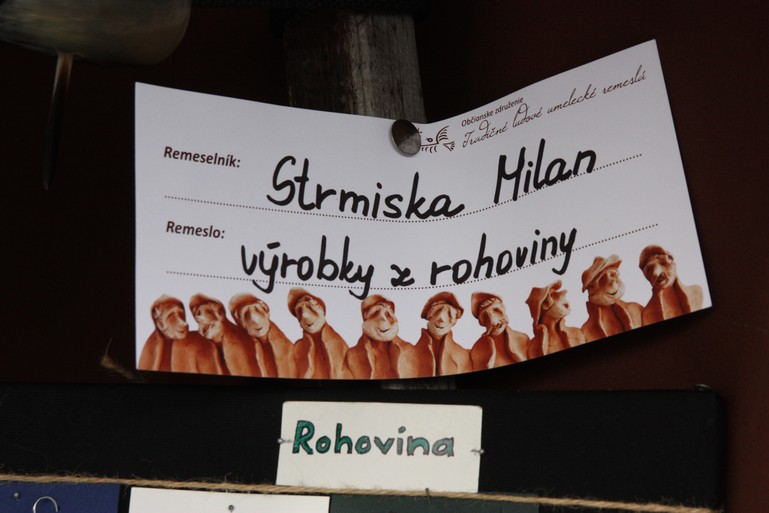 Občianske združenie
Tradičné ľudové umelecké remeslá
Remeselník: Strmiska Milan
Remeslo: výrobky z rohoviny
Rohovina